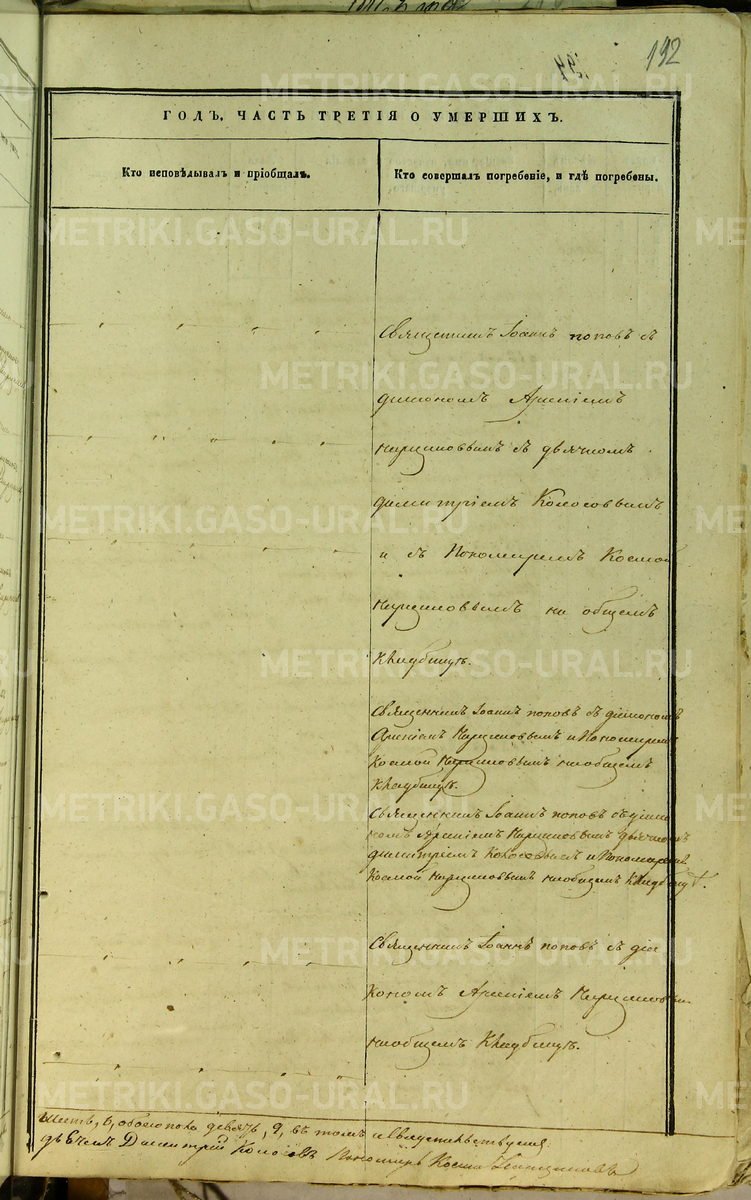 192
ГОДЪ, ЧАСТЬ ТРЕТІЯ О УМЕРШИХЪ.
Кто исповѣдывалъ и пріобщалъ.
Кто совершалъ погребеніе, и гдѣ погребены.
Священникъ Іоаннъ поповъ съ
діакономъ Арсеніемъ
съ дьячкомъ
димитріемъ Колосовымъ
и съ Пономаремъ Космой
на общемъ
кладбищѣ.
Священникъ Іоаннъ поповъ съ діакономъ
Арсеніемъ и Пономаремъ
Космой на общемъ
кладбищѣ.
Священникъ Іоаннъ поповъ съ діако
номъ Арсеніемъ дьячкомъ
димитріемъ Колосовымъ и Пономаремъ
Космой на общемъ кладбищѣ.
Священникъ Іоаннъ поповъ съ діа
кономъ Арсеніемъ
на общемъ кладбищѣ.
шесть, 6, обоего пола девять, 9, въ томъ
Димитрій Колосовъ Пономарь Косма
METRIKI.GASO-URAL.RU